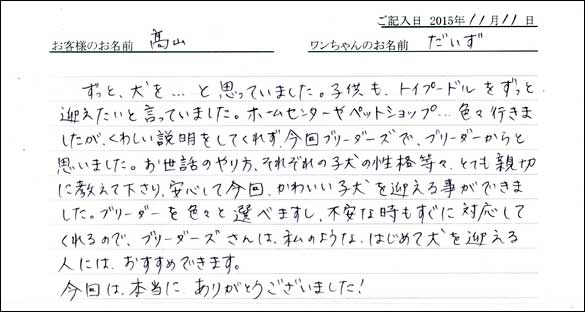 ご記入日 2015年 11月 11日
お客様のお名前 髙山 ワンちゃんのお名前 だいず
ずっと、犬を…と思っていました。子供も、トイプードルをずっと
迎えたいと言っていました。ホームセンターやペットショップ…色々行きま
したが、くわしい説明をしてくれず、今回ブリーダーズで、ブリーダーからと
思いました。お世話のやり方、それぞれの子犬の性格等々、とても親切
に教えて下さり、安心して今回、かわいい子犬を迎える事ができま
した。ブリーダーを色々と選べますし、不安な時もすぐに対応して
くれるので、ブリーダーズさんは、私のような、はじめて犬を迎える
人には、おすすめできます。
今回は、本当に、ありがとうございました!